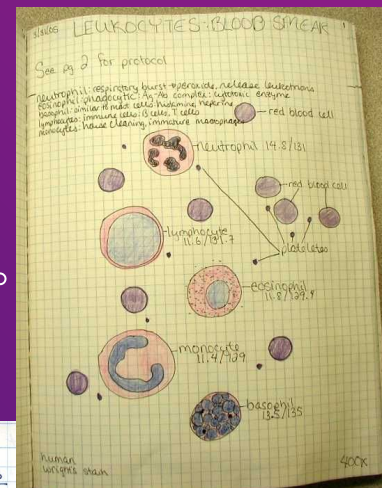 3/31/05 LEUKOCYTES: BLOOD SMEAR 1
See pg 2 for protocol
neutrophil: respiratory burst → peroxide, release leukotrions
eosinophil: phagocytic: Ag-Ab complex: cytotoxic enzyme
basophil: similar to mast cells: histamine, heperine
lymphocytes: immune cells: B cells, T cells
monocytes: house cleaning, immature macrophages
red blood cell
neutrophil 14.8/131
red blood cell
lymphocyte
11.6/131.7
platelets
eosinophil
11.8/129.4
monocyte
11.4/129
basophil
13.5/135
human
wright's stain
400X